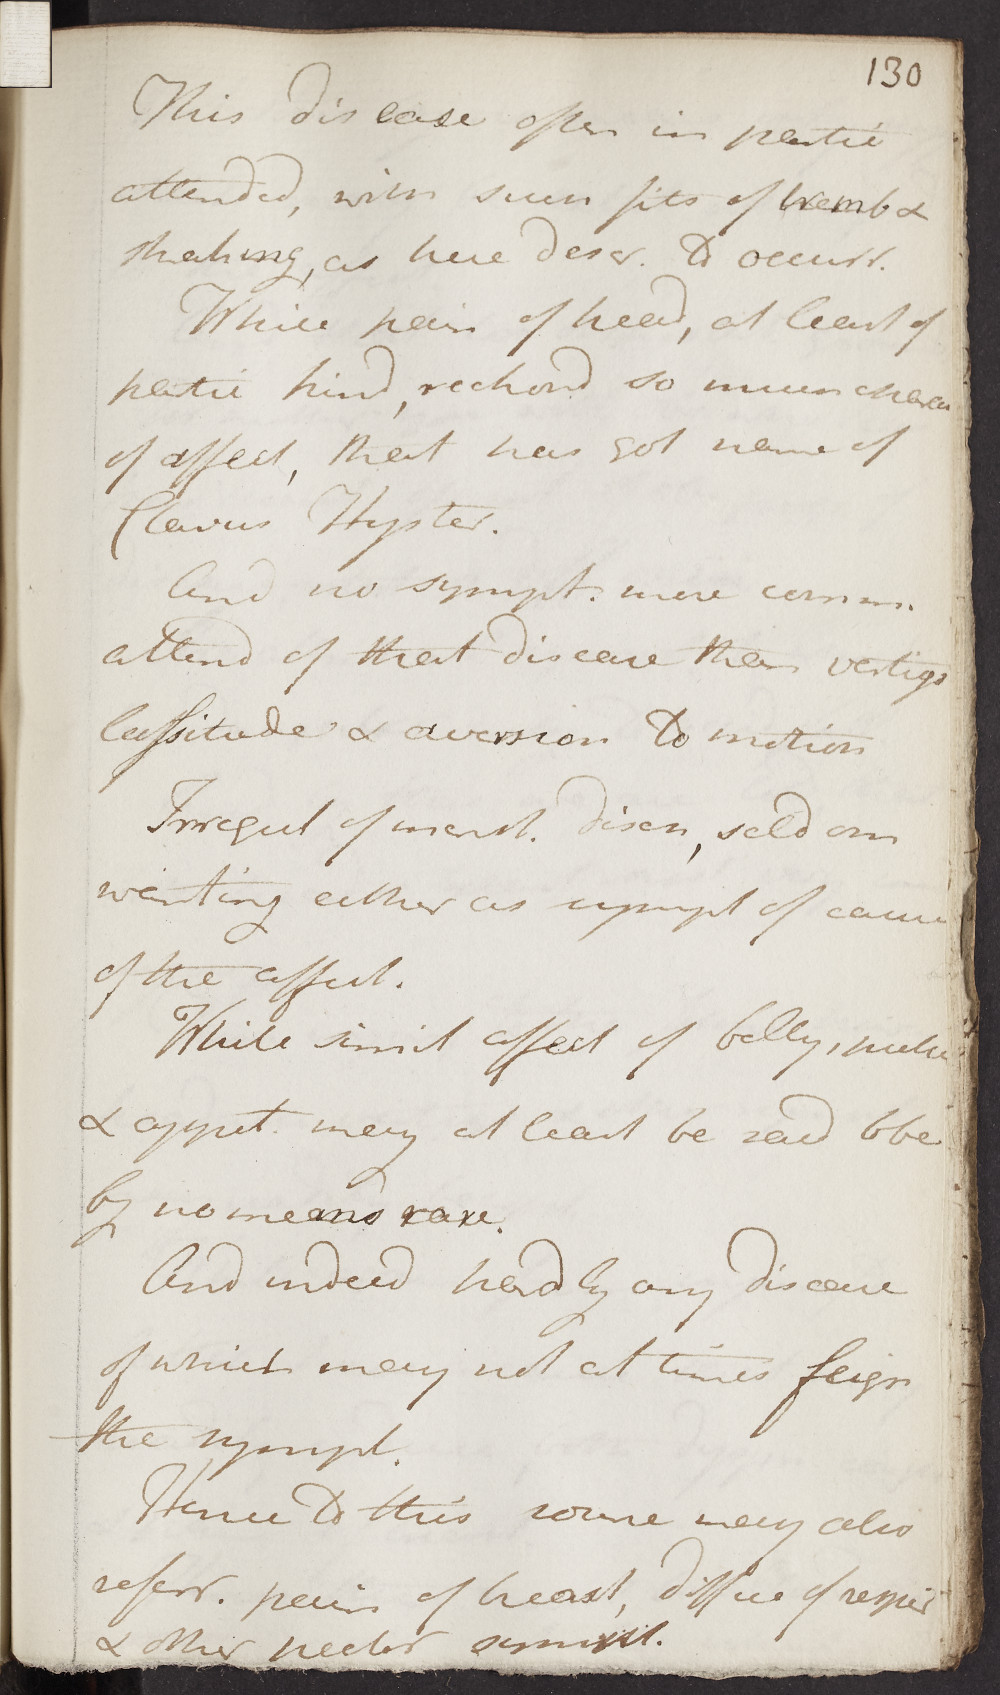 130
This disease often in partic
attended, with such fits of tremb &
shaking, as here descr. to occurr.
While pain of head, at least of
partic kind, reckond so much charac
of affect, that has got name of
Clavus Hyster.
And no sympt. more comm.
attend of that disease than vertigo
lassitude & aversion to motion
Irregul of menst. disch, seldom
wanting either as sympt of cause
of the affect.
While simil affect of belly,
& appet. may at least be said to be
by no means rare.
And indeed hardly any disease
of which may not at times feign
the sympt.
Hence to this source may also
referr. pain of breast, diffic of respir
& other pector sympt.